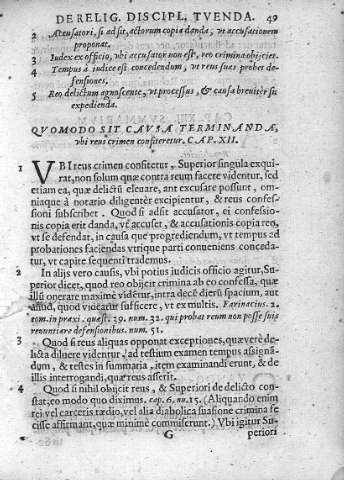 DE RELIG. DISCIPL, TVENDA. 49
2 Accusatori, si adsit, actorum copia danda, vt accusationem
proponat.
3 Iudex ex officio, vbi accusator non est, reo crimina obijcit.
4 Tempus a iudice est concedendum, vt reus suas probet de-
fensiones.
5 Reo delictum agnoscente, vt processus, & causa breuiter sit
expedienda.
QVOMODO SIT CAVSA TERMINANDA,
vbi reus crimen confiteretur. CAP. XII.
1 VBI reus crimen confitetur, Superior singula exqui-
rat, non solum quæ contra reum facere videntur, sed
etiam ea, quæ delictũ eleuare, aut excusare possunt, om-
niaque à notario diligenter excipientur, & reus confes-
sioni subscribet. Quod si adsit accusator, ei confessio-
nis copia erit danda, vt accuset, & accusationis copia reo,
vt se defendat, in causa que progrediendum, vt tempus ad
probationes faciendas vtrique parti conueniens conceda-
tur, vt capite sequenti trademus.
2 In alijs vero causis, vbi potius iudicis officio agitur, Su-
perior dicet, quod reo objicit crimina ab eo confessa, quæ
illũ onerare maximè vidẽtur, intra decẽ dierũ spacium, aut
aliud, quod videatur sufficere, vt ex multis. Farinacius. 2.
tom. in praxi. quæst. 39. num. 32. qui probat reum non posse suis
renuntiare defensionibus. num. 51.
3 Quod si reus aliquas opponat exceptiones, quæ verè de-
licta diluere videntur, ad testium examen tempus assignã-
dum, & testes in summaria, item examinandi erunt, & de
illis interrogandi, quæ reus asserit.
4 Quod si nihil objecit reus, & Superiori de delicto con-
stat, eo modo quo diximus. cap. 6. nu. 15. (Aliquando enim
rei vel carceris tædio, vel alia diabolica suasione crimina fe-
cisse affirmant, quæ minime commiserunt.) Vbi igitur Su-
G periori